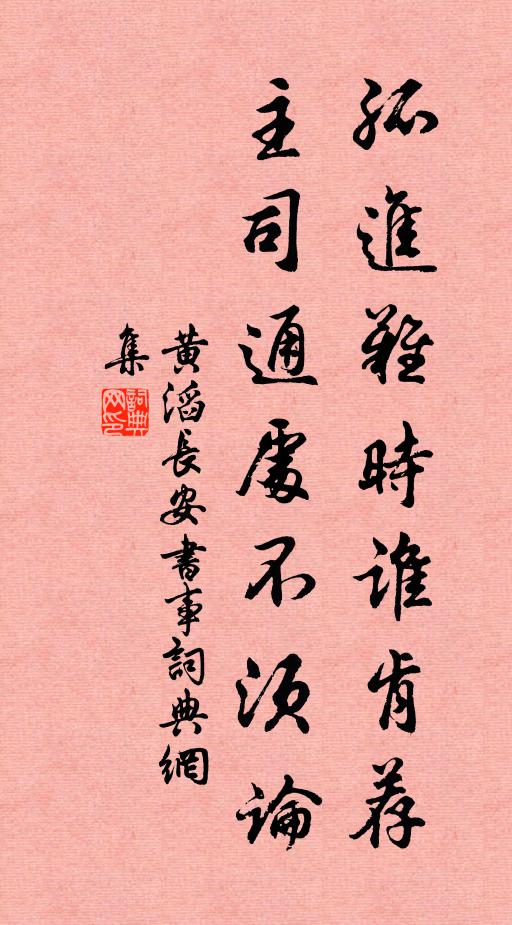 孤進難時誰肯荐
主司通處不須論
黃滔長安書事詞典網
集
詞典网印